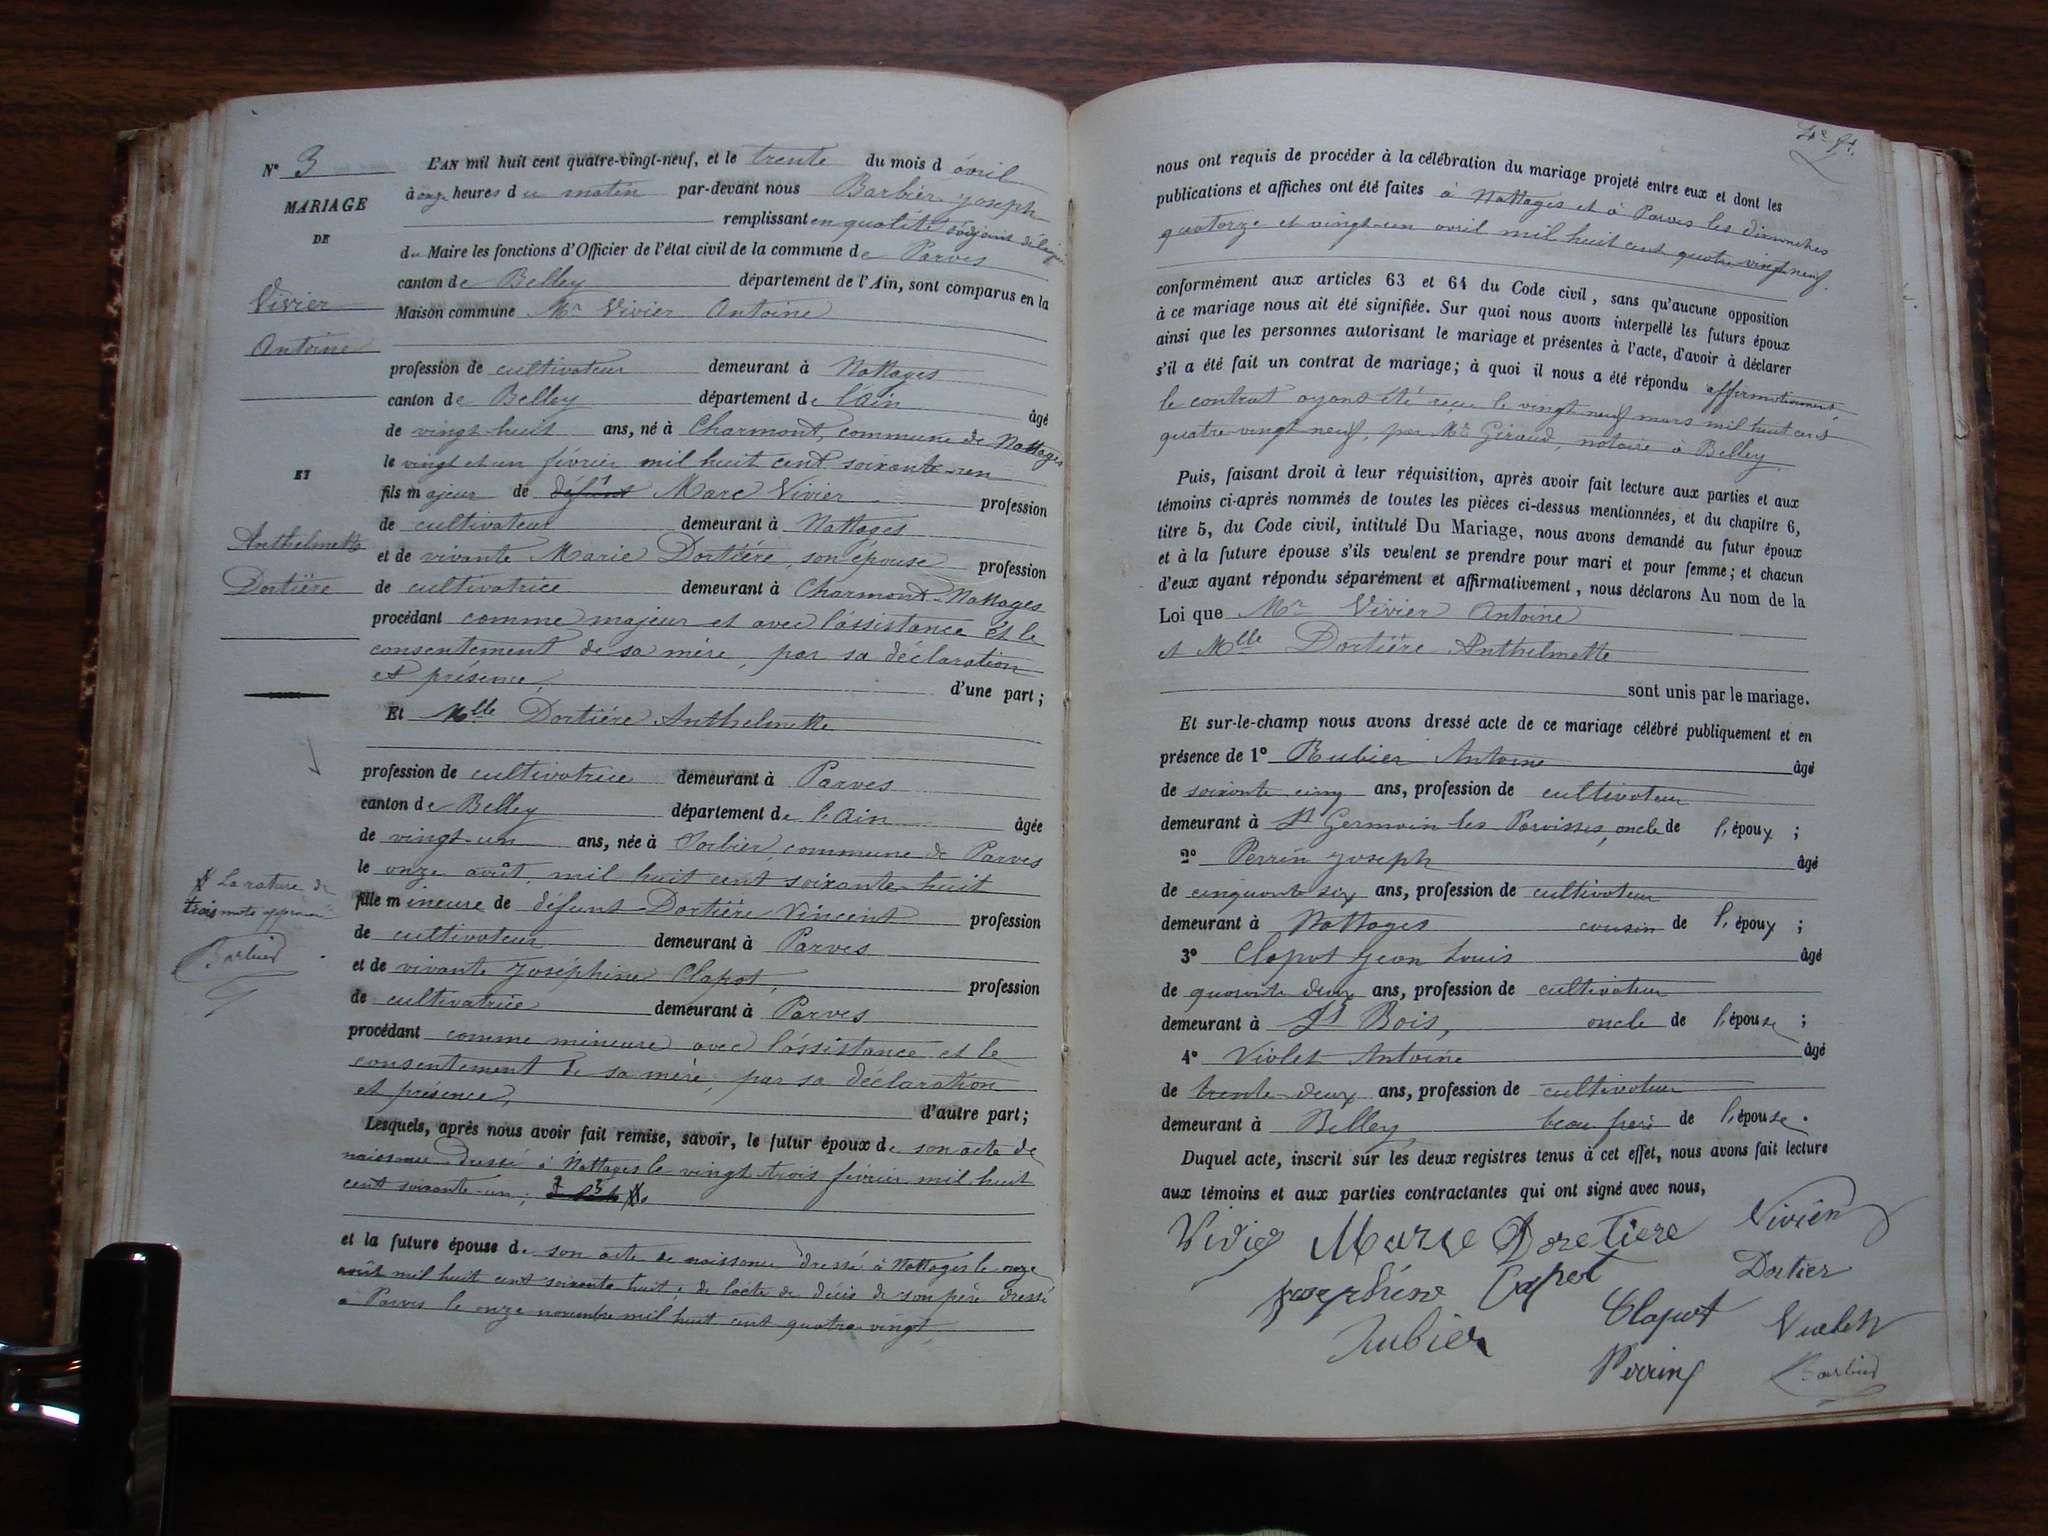 N° 3
MARIAGE
DE
Vivier
Antoine
ET
Anthelmette
Dortière
La rature de
trois mots approuvée
Barbier
L'AN mil huit cent quatre-vingt-neuf, et le trente du mois d avril
à onze heures du matin par-devant nous Barbier Joseph
remplissant en qualité d'adjoint délégué
du Maire les fonctions d'Officier de l'état civil de la commune de Parves
canton de Belley département de l'Ain, sont comparus en la
Maison commune Mr Vivier Antoine
profession de cultivateur demeurant à Nattages
canton de Belley département de l'Ain âgé
de vingt-huit ans, né à Charmont, commune de Nattages
le vingt et un février mil huit cent soixante-un
fils majeur de défunt Marc Vivier profession
de cultivateur demeurant à Nattages
et de vivante Marie Dortière, son épouse profession
de cultivatrice demeurant à Charmont-Nattages
procédant comme majeur et avec l'assistance et le
consentement de sa mère, par sa déclaration
et présence, d'une part;
Et Mlle Dortière Anthelmette
profession de cultivatrice demeurant à Parves
canton de Belley département de l'Ain âgée
de vingt-un ans, née à Sorbier, commune de Parves
le onze août, mil huit cent soixante-huit
fille mineure de défunt Dortière Vincent profession
de cultivateur demeurant à Parves
et de vivante Joséphine Clapot, profession
de cultivatrice demeurant à Parves
procédant comme mineure avec l'assistance et le
consentement de sa mère, par sa déclaration
et présence, d'autre part;
Lesquels, après nous avoir fait remise, savoir, le futur époux de son acte de
naissance dressé à Nattages le vingt-trois février mil huit
cent soixante-un;
et la future épouse de son acte de naissance dressé à Nattages le onze
août mil huit cent soixante huit; de l'acte de décès de son père dressé
à Parves le onze novembre mil huit cent quatre-vingt,
nous ont requis de procéder à la célébration du mariage projeté entre eux et dont les
publications et affiches ont été faites à Nattages et à Parves les dimanches
quatorze et vingt-un avril mil huit cent quatre vingt neuf.
conformément aux articles 63 et 64 du Code civil, sans qu'aucune opposition
à ce mariage nous ait été signifiée. Sur quoi nous avons interpellé les futurs époux
ainsi que les personnes autorisant le mariage et présentes à l'acte, d'avoir à déclarer
s'il a été fait un contrat de mariage; à quoi il nous a été répondu affirmativement,
le contrat ayant été reçu le vingt neuf mars mil huit cent
quatre vingt neuf, par Me Giraud, notaire à Belley.
Puis, faisant droit à leur réquisition, après avoir fait lecture aux parties et aux
témoins ci-après nommés de toutes les pièces ci-dessus mentionnées, et du chapitre 6,
titre 5, du Code civil, intitulé Du Mariage, nous avons demandé au futur époux
et à la future épouse s'ils veulent se prendre pour mari et pour femme; et chacun
d'eux ayant répondu séparément et affirmativement, nous déclarons Au nom de la
Loi que Mr Vivier Antoine
et Mlle Dortière Anthelmette
sont unis par le mariage.
Et sur-le-champ nous avons dressé acte de ce mariage célébré publiquement et en
présence de 1° Rubier Antoine âgé
de soixante cinq ans, profession de cultivateur
demeurant à St Germain les Paroisses, oncle de l'époux ;
2° Perrin Joseph âgé
de cinquante six ans, profession de cultivateur
demeurant à Nattages cousin de l'époux ;
3° Clapot Jean Louis âgé
de quarante deux ans, profession de cultivateur
demeurant à St Bois, oncle de l'épouse ;
4° Violet Antoine âgé
de trente-deux ans, profession de cultivateur
demeurant à Belley beau frère de l'épouse.
Duquel acte, inscrit sur les deux registres tenus à cet effet, nous avons fait lecture
aux témoins et aux parties contractantes qui ont signé avec nous,
Vivier Marie Doretiere Vivien
Dortier
Clapot
Rubier
Perrin
Barbier